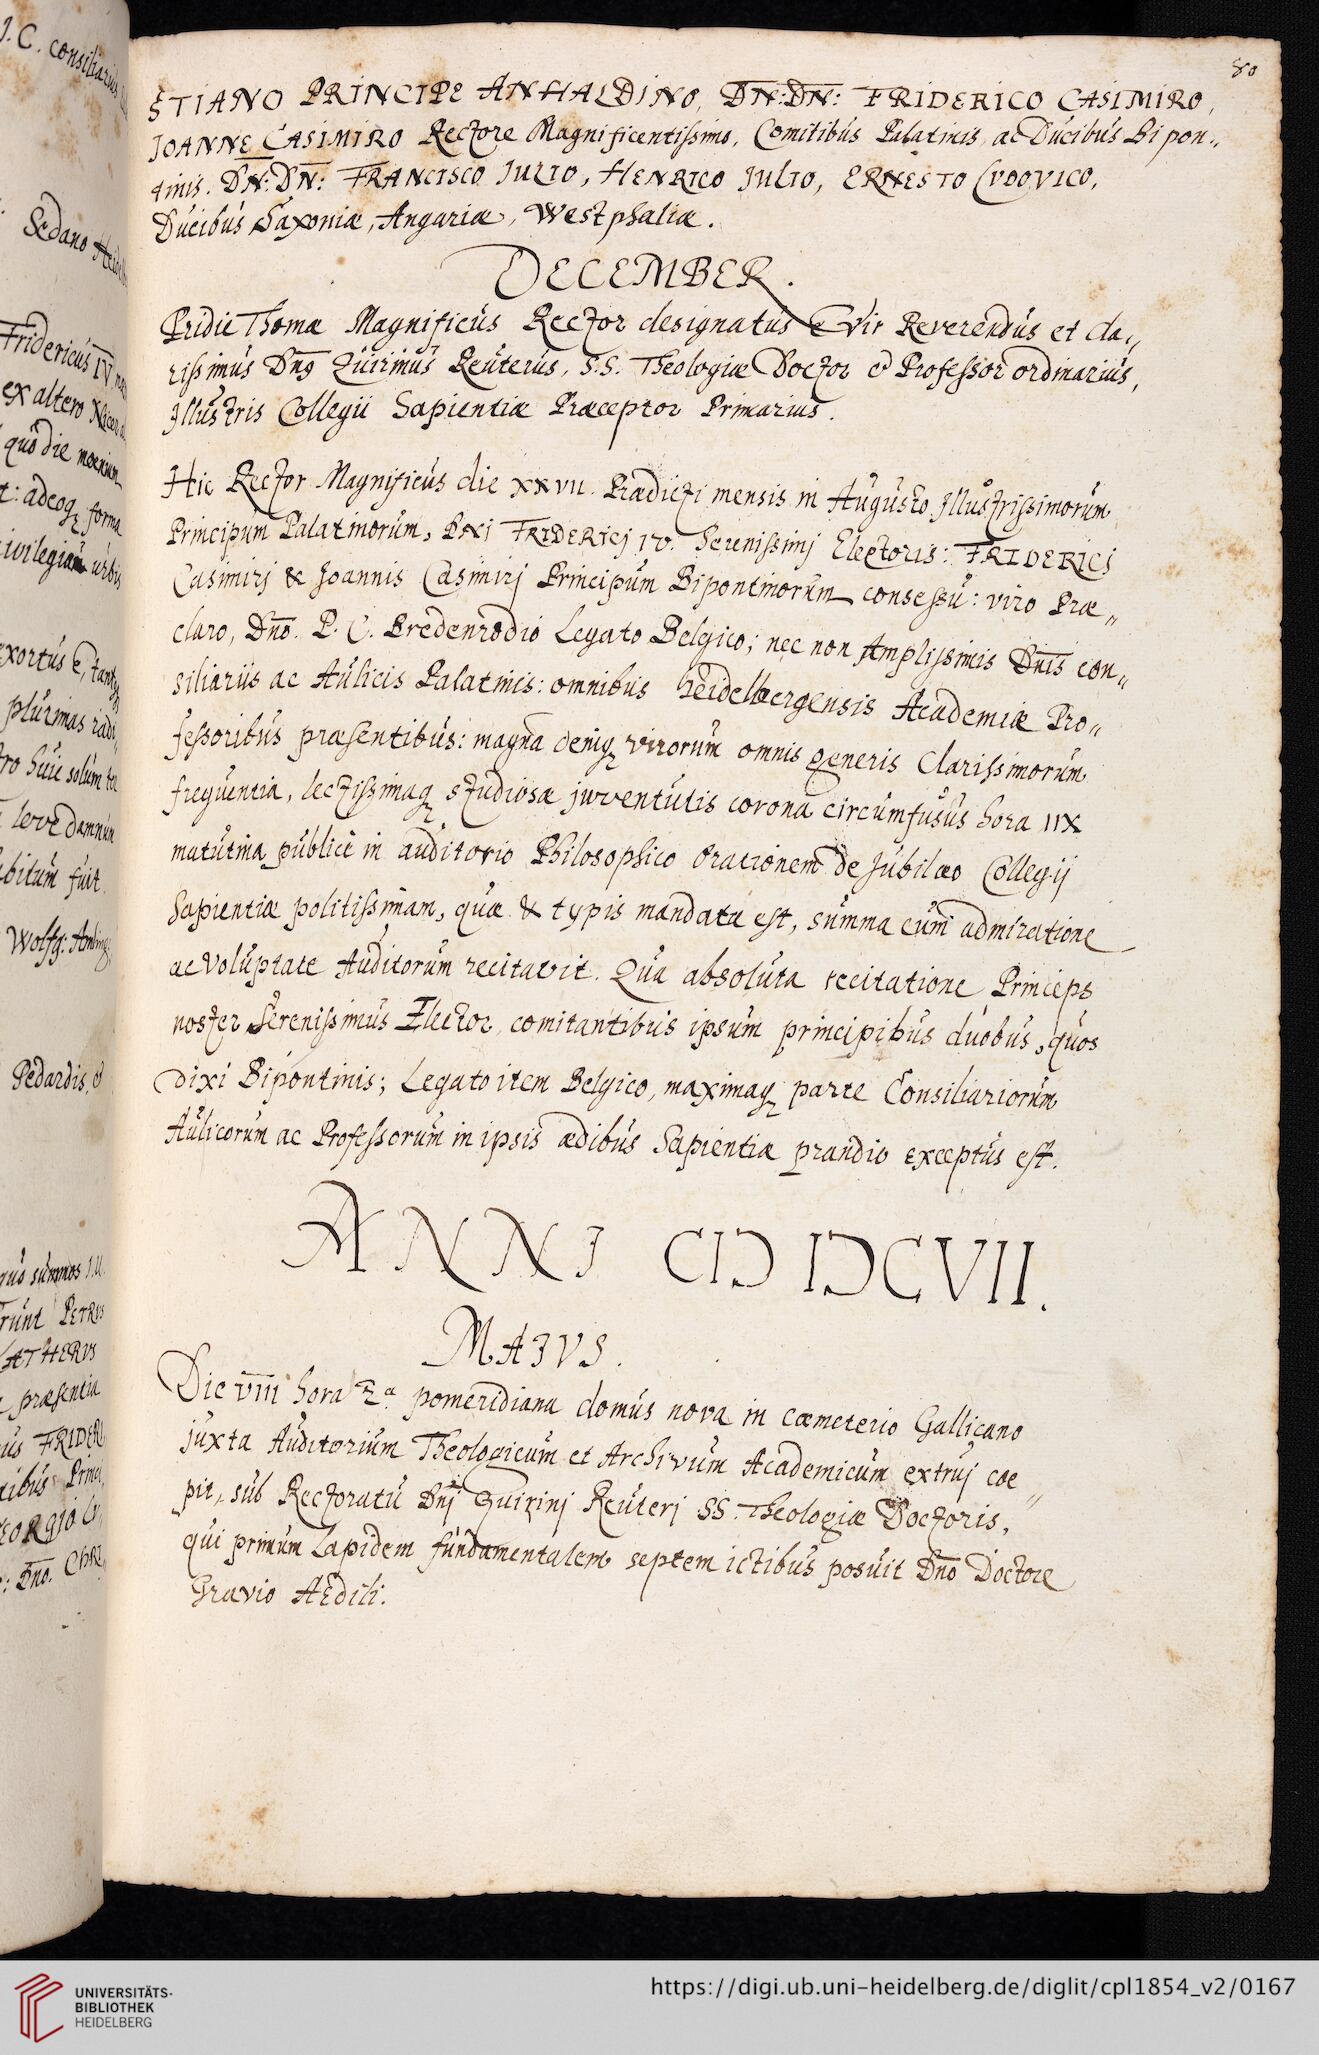 80
STIANO PRINCIPE ANHALDINO, DN: DN: FRIDERICO CASIMIRO,
JOANNE CASIMIRO Rectore Magnificentissimo, Comitibus Palatinis, ac Ducibus Bipon„
tinis. DN: DN: FRANCISCO JULIO, HENRICO JULIO, ERNESTO LVDOVICO,
Ducibus Saxoniæ, Angariæ, Westphaliæ.
DECEMBER.
Pridie Thomæ Magnificus Rector designatus e Vir Reverendus et cla„
rissimus Dn9 Quirinus Reuterus, S.S. Theologiæ Doctor & Professor ordinarius,
Illustris Collegii Sapientiæ Præceptor Primarius.
Hic Rector Magnificus die XXVII. Prædicti mensis in Augusto Illustrissimorum
Principum Palatinorum, DNI FRIDERICJ IV. Serenissimj Electoris: FRIDERICJ
Casimirj & Joannis Casimirj Principum Bipontinorum consessu: viro Præ„
claro, Dno. P. C. Bredenrodio Legato Belgico; nec non Amplissimis Dnis con„
siliariis ac Aulicis Palatinis: omnibus heidelbergensis Academiæ Pro„
fessoribus præsentibus: magna deniq virorum omnis generis Clarissimorum
frequentia, lectissimaq studiosæ juventutis corona circumfusus hora IIX
matutina publicè in auditorio Philosophico orationem de Jubilæo Collegij
Sapientiæ politissimam, quæ & typis mandata est, summa cum admiratione
ac voluptate Auditorum recitavit. Qua absoluta recitatione Princeps
noster Serenissimus Elector, comitantibus ipsum principibus duobus, quos
dixi Bipontinis; Legato item Belgico, maximaq parte Consiliariorum
Aulicorum ac Professorum in ipsis ædibus Sapientiæ prandio exceptus est.
ANNI CIƆ IƆCVII.
MAJVS.
Die VIII hora 2a. pomeridiana domus nova in cœmeterio Gallicano
juxta Auditorium Theologicum et Archivum Academicum extruj cœ„
pit, sub Rectoratu Dnj Quirinj Reuterj SS. Theologiæ Doctoris,
qui primum lapidem fundamentalem septem ictibus posuit Dno Doctore
Grævio Ædili.
J. C. consiliarius
Sedano
Fridericus IV
ex altero
quo die moenium
t: adeoq forma
ivilegium urbis
exortus e, tantq
plurimas
ro huic solum
leve damnum
bitum fuit.
Wolfg:
Pedardis, &
quo summos J.U.
runt PETRVS
præsentia
us FRIDERI
Princi
: Dno. CHRI
UNIVERSITÄTS-
BIBLIOTHEK
HEIDELBERG
https://digi.ub.uni-heidelberg.de/diglit/cpl1854_v2/0167